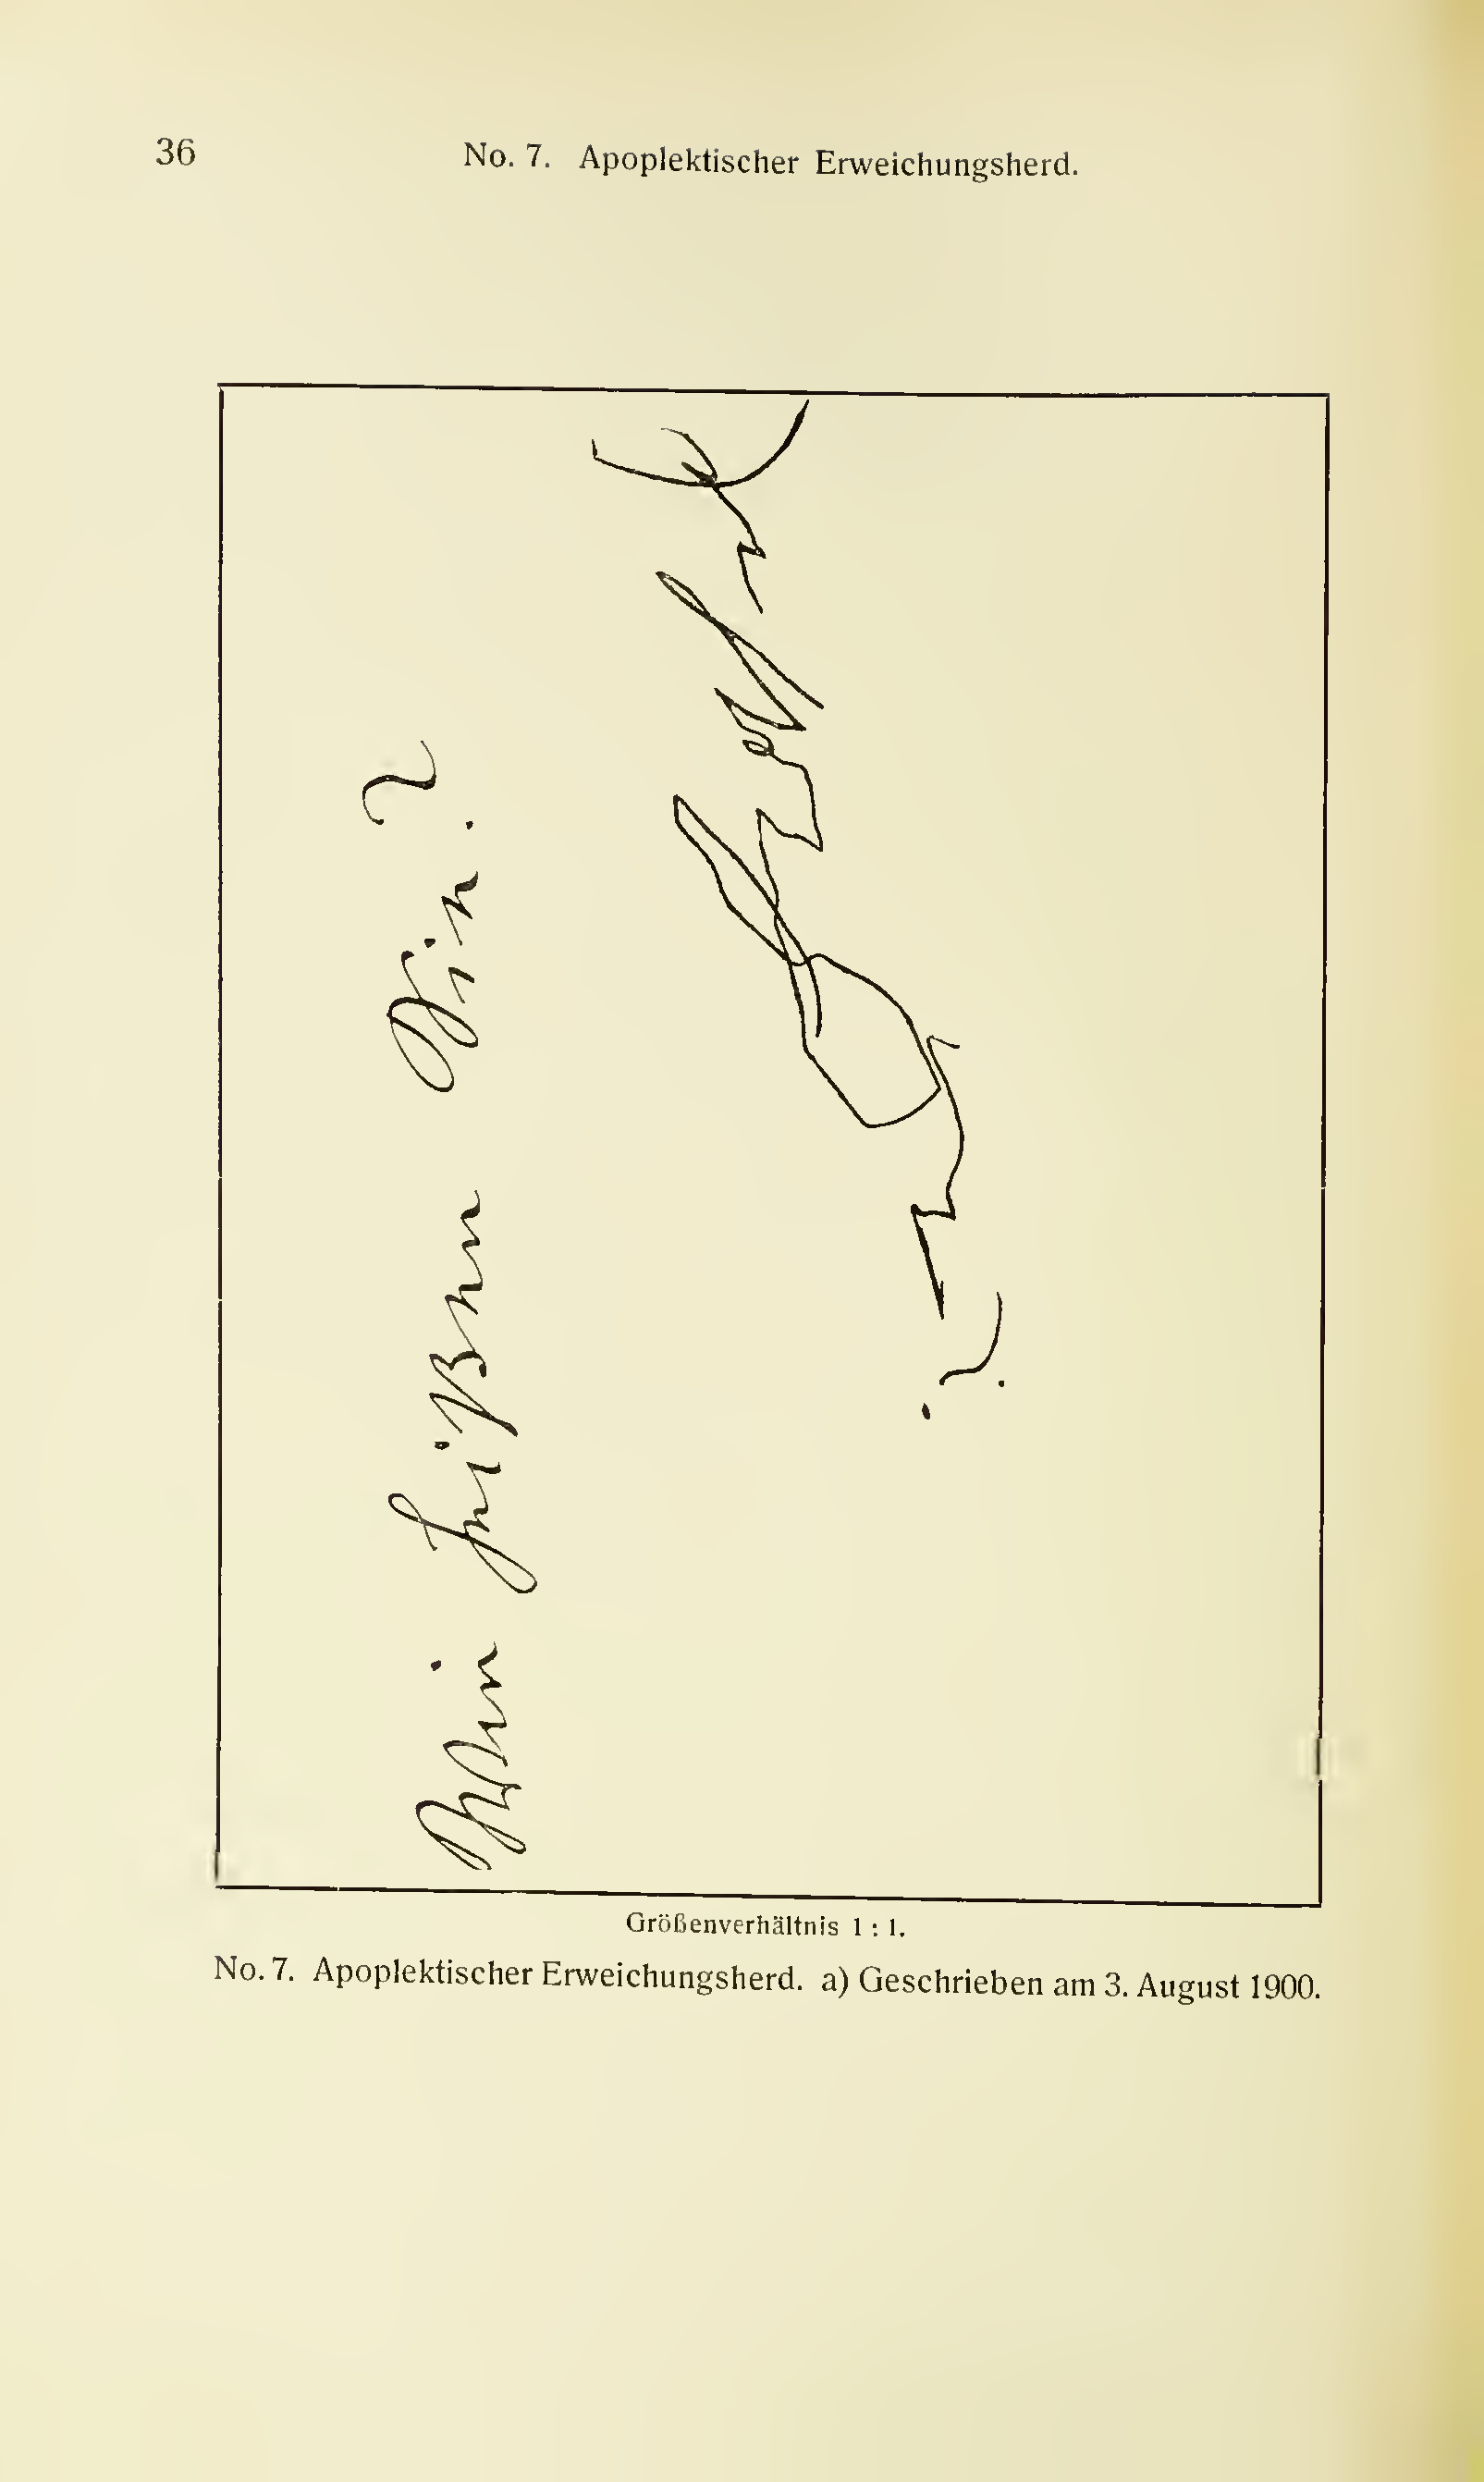 36
No. 7. Apoplektischer Erweichungsherd.
Wie heißen Sie?
Größenverhältnis 1 : 1.
No. 7. Apoplektischer Erweichungsherd. a) Geschrieben am 3. August 1900.